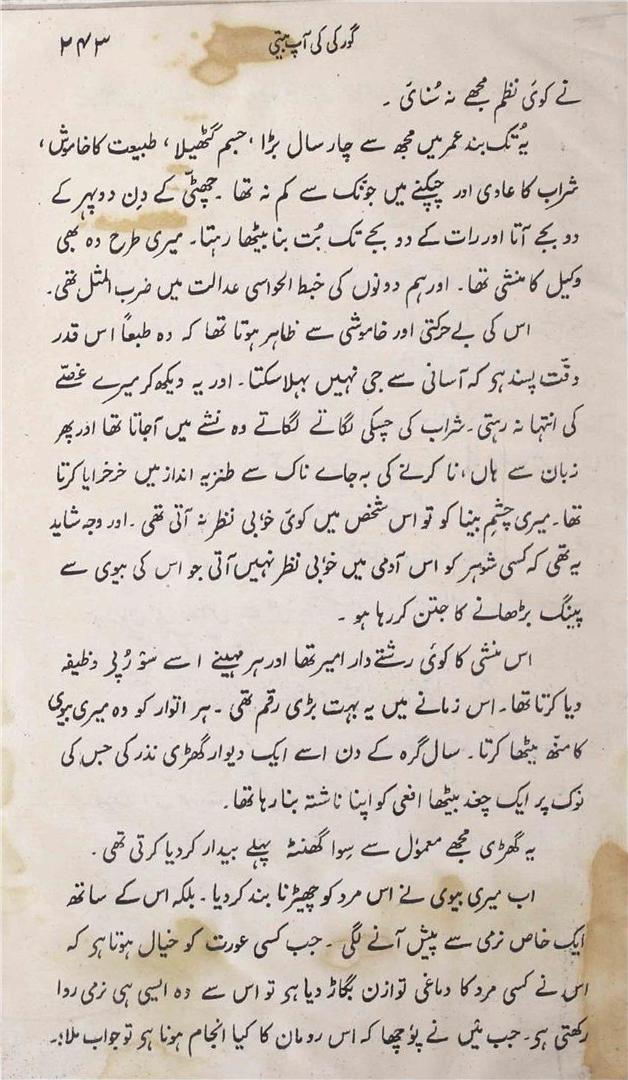 گورکی کی آپ بیتی
۲۴۳
نے کوئی نظم مجھے نہ سُنائی ۔
یہ تُک بند عمر میں مجھ سے چار سال بڑا ، جسم گٹھیلا ، طبیعت کا خاموش ،
شراب کا عادی اور چپکنے میں جونک سے کم نہ تھا ۔ چھٹّی کے دِن دوپہر کے
دو بجے آتا اور رات کے دو بجے تک بُت بنا بیٹھا رہتا۔ میری طرح وہ بھی
وکیل کا منشی تھا۔ اور ہم دونوں کی خبط الحواسی عدالت میں ضرب المثل تھی۔
اس کی بے حرکتی اور خاموشی سے ظاہر ہوتا تھا کہ وہ طبعاً اس قدر
دقّت پسند ہی کہ آسانی سے جی نہیں بہلا سکتا۔ اور یہ دیکھ کر میرے غصّے
کی انتہا نہ رہتی۔ شراب کی چسکی لگاتے لگاتے وہ نشے میں آجاتا تھا اور پھر
زبان سے ہاں، نا کرنے کی بہ جاے ناک سے طنزیہ انداز میں خرخرایا کرتا
تھا۔ میری چشمِ بینا کو تو اس شخص میں کوئی خوٗبی نظر نہ آتی تھی ۔ اور وجہ شاید
یہ تھی کہ کسی شوہر کو اس آدمی میں خوٗبی نظر نہیں آتی جو اس کی بیوی سے
پینگ بڑھانے کا جتن کر رہا ہو ۔
اس منشی کا کوئی رشتے دار امیر تھا اور ہر مہینے اسے سو رُپلی وظیفہ
دیا کرتا تھا۔ اس زمانے میں یہ بہت بڑی رقم تھی ۔ ہر اتوار کو وہ میری بیوی
کا منھ میٹھا کرتا۔ سال گرہ کے دن اسے ایک دیوار گھڑی نذر کی جس کی
نوک پر ایک چغد بیٹھا افعی کو اپنا ناشتہ بنا رہا تھا۔
یہ گھڑی مجھے معموٗل سے سِوا گھنٹہ پہلے بیدار کردیا کرتی تھی ۔
اب میری بیوی نے اس مرد کو چھیڑنا بند کردیا ۔ بلکہ اس کے ساتھ
ایک خاص نرمی سے پیش آنے لگی ۔ جب کسی عورت کو خیال ہوتا ہی کہ
اس نے کسی مرد کا دماغی توازن بگاڑ دیا ہی تو اس سے وہ ایسی ہی نرمی روا
رکھتی ہی۔ جب میٰں نے پوٗچھا کہ اس رومان کا کیا انجام ہونا ہی تو جواب ملا:۔